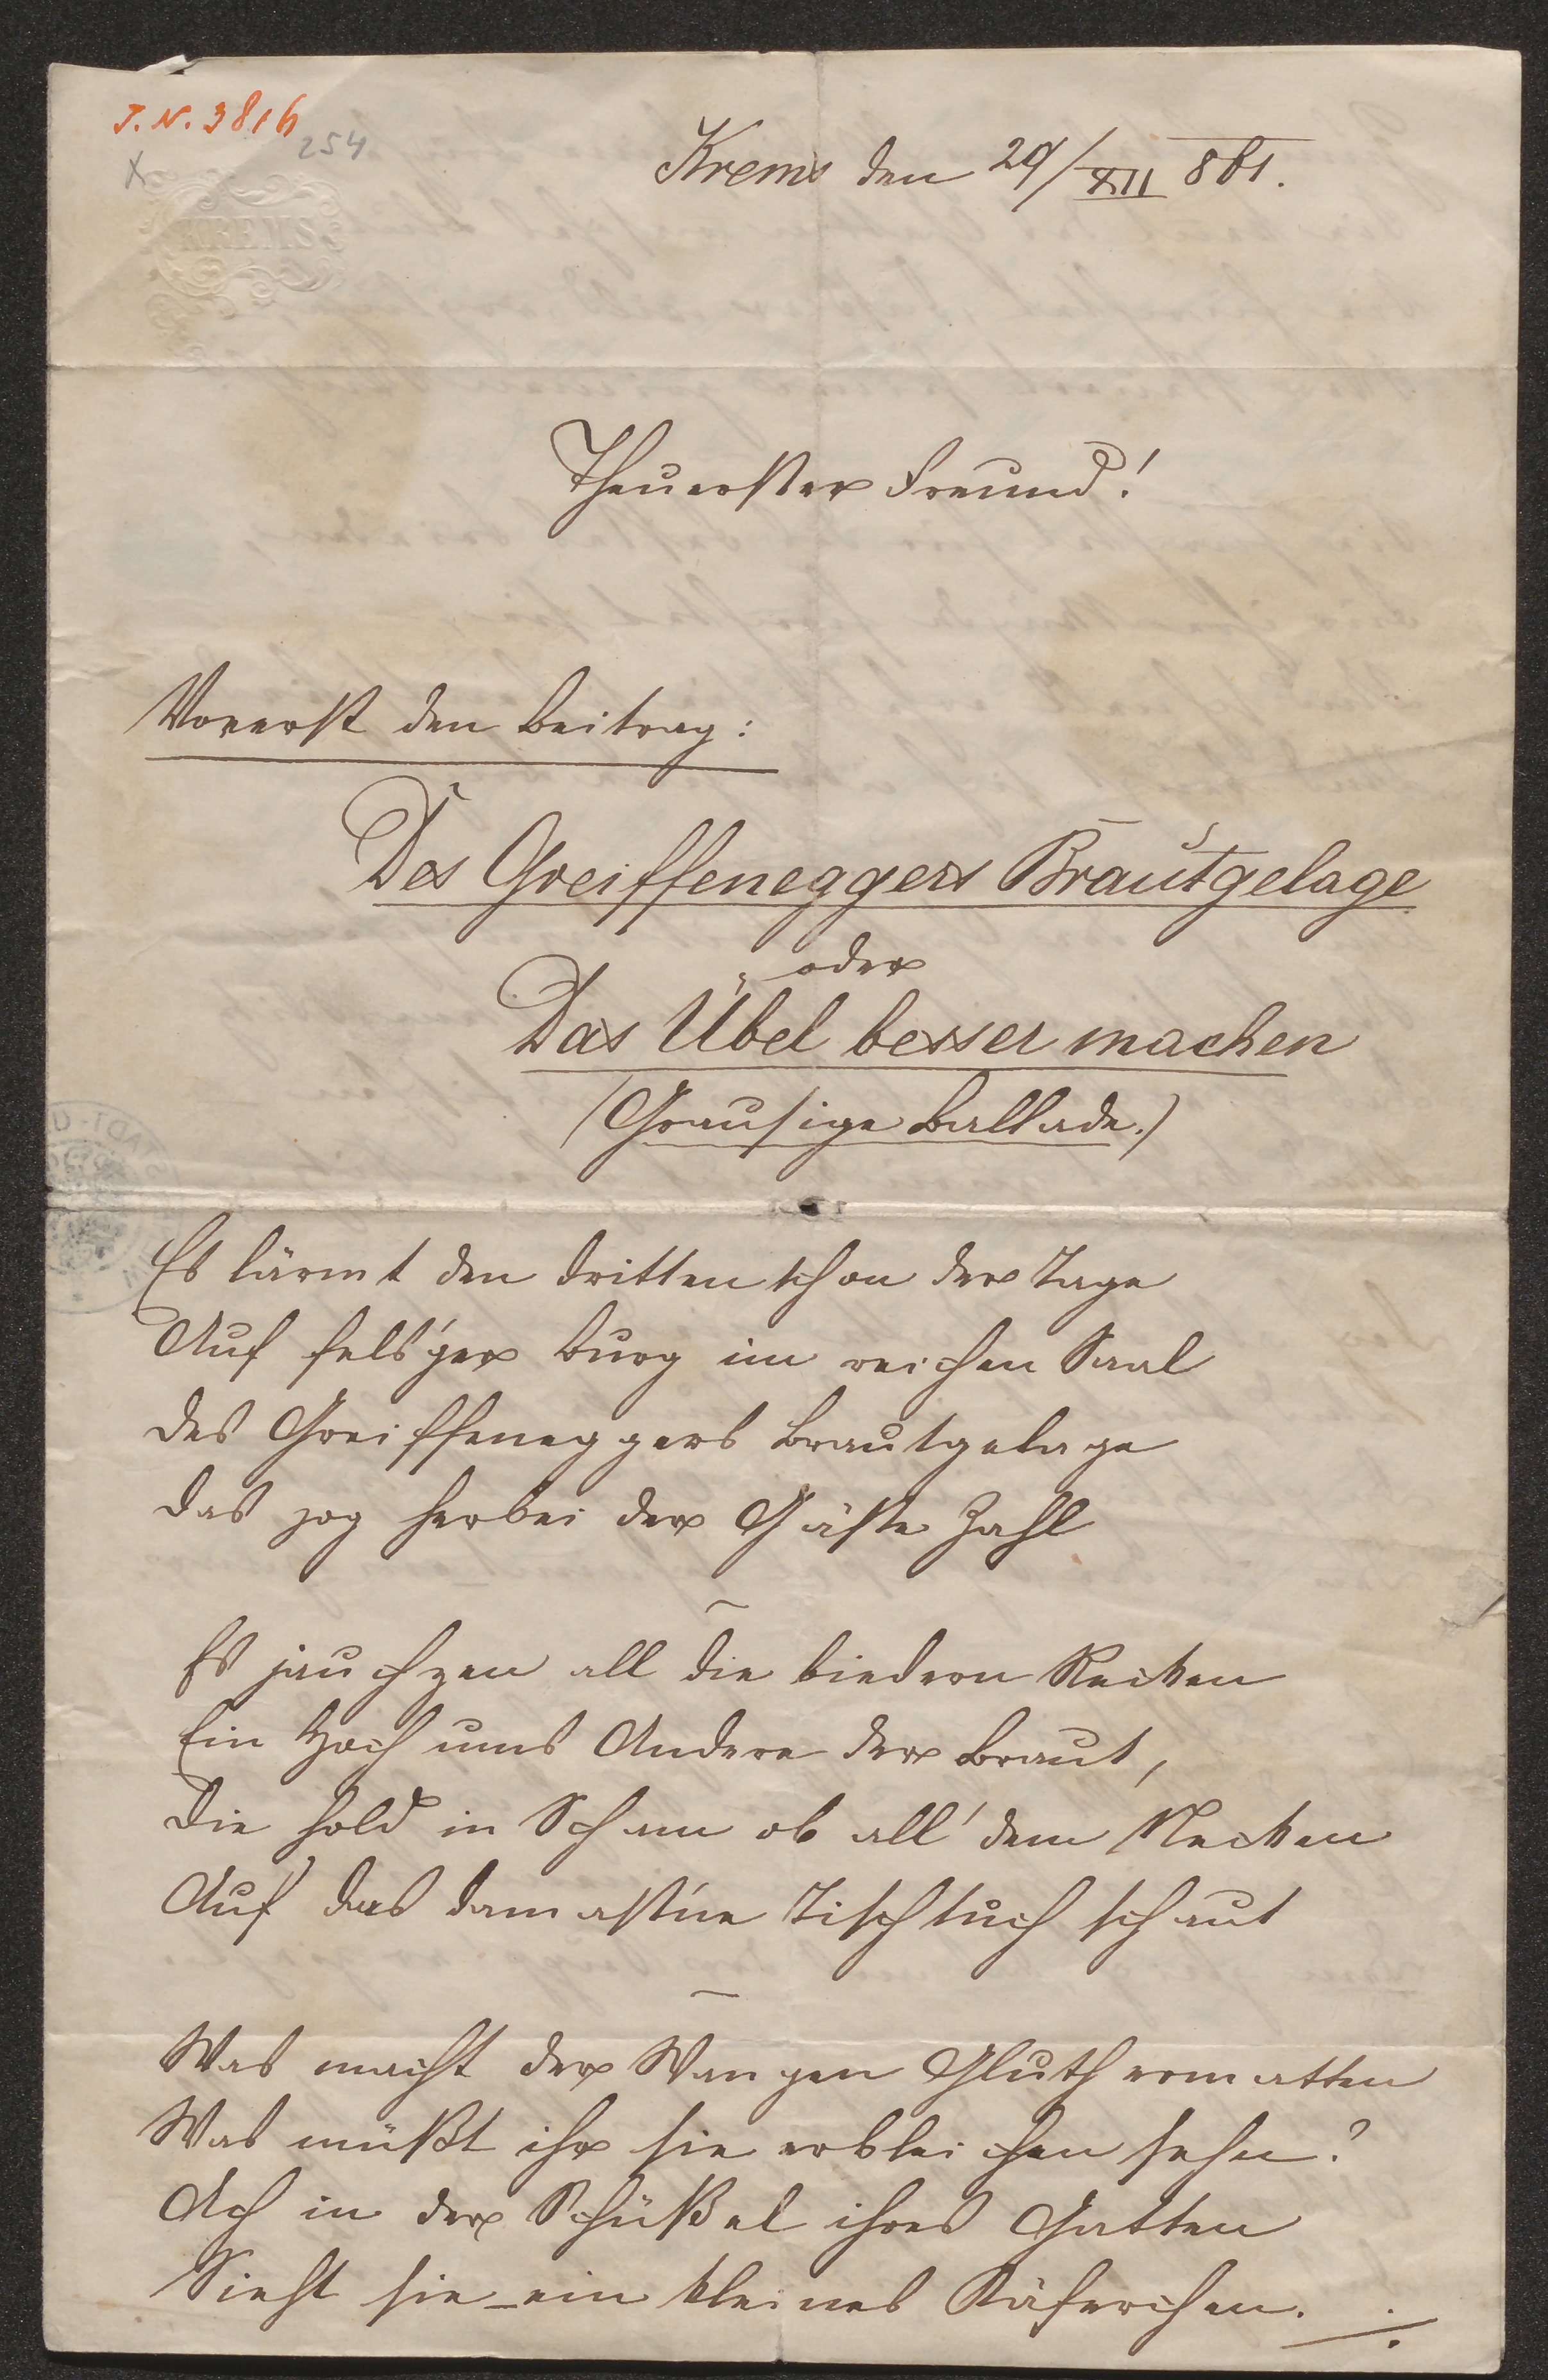 J. N. 3816
254
x
KREMS
Krems den 29/XII 861.
Theuerster Freund!
Vorerst den Beitrag:
Des Greiffeneggers Brautgelage
oder
Das Übel besser machen
(Grausige Ballade.)
Es lärmt den dritten schon der Tage
Auf fels'ger Burg im reichen Saal
Des Greiffeneggers Brautgelage
Das zog herbei der Gäste Zahl
Es jauchzen all die biedern Recken
Ein Hoch ums Andere der Braut,
Die hold in Scham ob all' dem Necken
Auf das damast'ne Tischtuch schaut
Was macht der Wangen Gluth ermatten
Was müßt ihr sie erbleichen sehn?
Ach in der Schüßel ihres Gatten
Sieht sie – ein kleines Käferchen. ./.